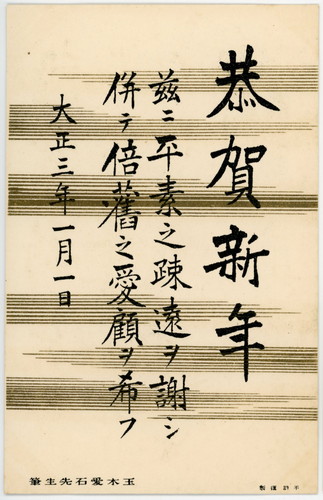 恭賀新年
茲ニ平素之疎遠ヲ謝シ
併テ倍舊之愛顧ヲ希フ
大正三年一月一日
玉木愛石先生筆
不許復製